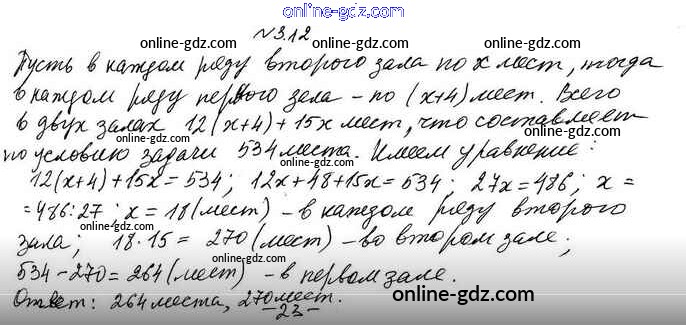 online-gdz.com
№312
online-gdz.com online-gdz.com
Пусть в каждом ряду второго зала по x мест, тогда
online-gdz.com online-gdz.com
в каждом ряду первого зала – по (x+4) мест. Всего
online-gdz.com online-gdz.com
в двух залах 12(x+4)+15x мест, что составляет
по условию задачи 534 места. Имеем уравнение:
online-gdz.com online-gdz.com
12(x+4)+15x=534; 12x+48+15x=534; 27x=486; x=
=486:27; x=18 (мест) – в каждом ряду второго
online-gdz.com online-gdz.com
зала; 18·15= 270 (мест) – во втором зале;
online-gdz.com
534-270=264 (мест) – в первом зале.
Ответ: 264 места, 270 мест.
online-gdz.com online-gdz.com
–23–
online-gdz.com